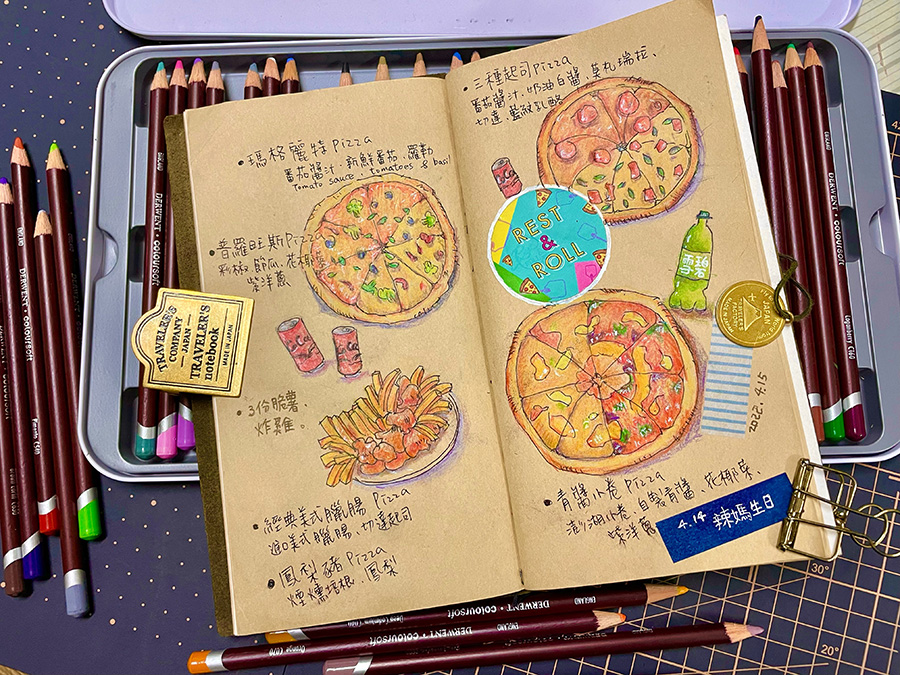 •瑪格麗特 Pizza
番茄醬汁．新鮮番茄．羅勒
Tomato sauce、tomatoes & basil
•普羅旺斯Pizza
彩椒 節瓜、花椰
紫洋蔥
TRAVELER'S
COMPANY
JAPAN
TRAVELER'S
notebook
MADE IN JAPAN
•3份脆薯．
炸雞．
•經典美式臘腸 Pizza
進口美式臘腸、切達起司
•鳳梨豬 Pizza
煙燻培根．鳳梨
•三種起司Pizza
番茄醬汁．奶油白醬 莫札瑞拉．
切達 藍紋乳酪
REST
&
ROLL
雪碧
2022.4.15
•青醬小卷 Pizza
澎湖小卷．自製青醬、花椰菜、
紫洋蔥
4.14 辣媽生日
JAPAN
DERWENT
DERWENT
DERWENT • COLOURSOFT
DERWENT • COLOURSOFT
DERWENT • COLOURSOFT
ENGLAND
ENGLAND
Orange C070
Loganberry C160
30°
20°